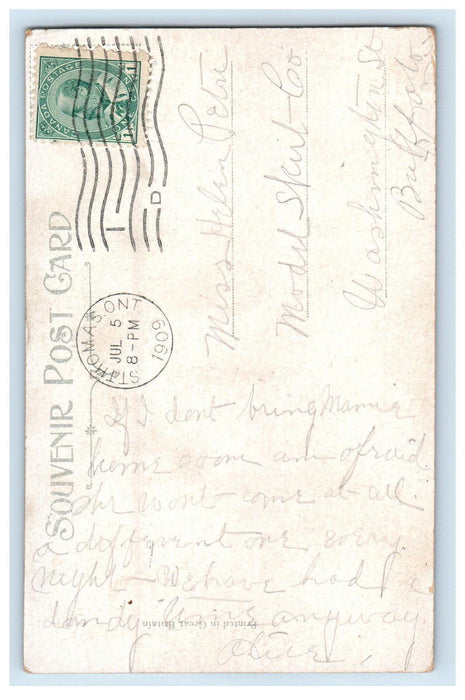 CANADA POSTAGE
1
1
ST THOMAS, ONT
JUL 5
8-PM
1909
I
D
SOUVENIR POST CARD
Miss Helen
Model Skirt Co
Washington St
Buffalo
If I dont bring Mamie
home soon am afraid
she wont come at all.
a different one every
night – We have had a
dandy time anyway
Alice
Printed in Great Britain